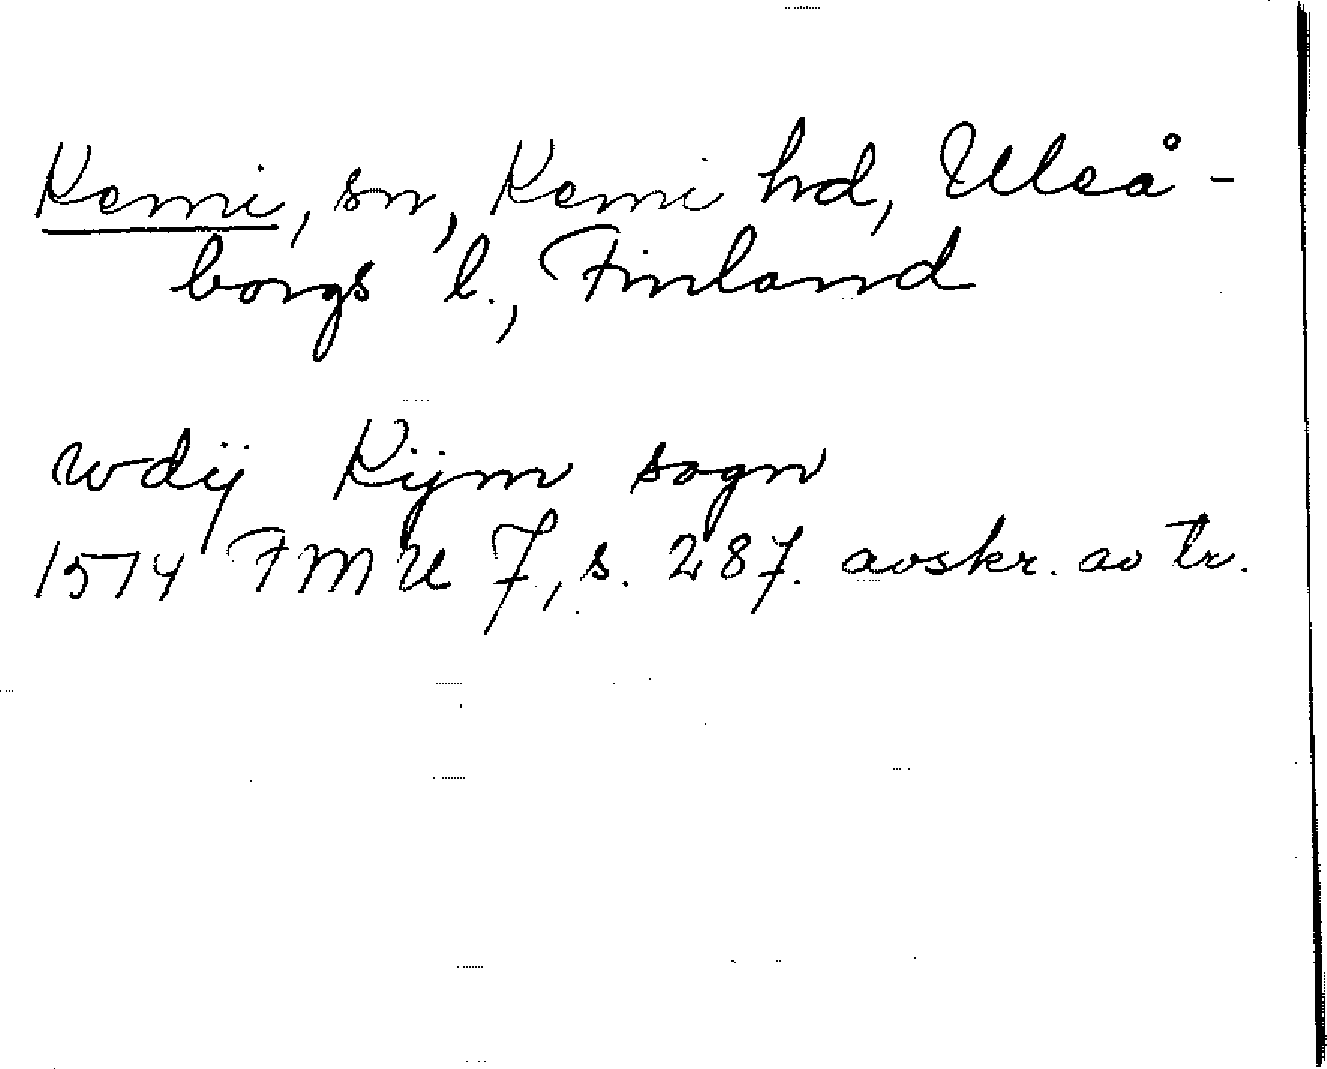 Kemi, sn, Kemi hd, Uleå-
borgs l., Finland
wdij Kijm sogn
1514 FMU 7, s. 287. avskr. av tr.